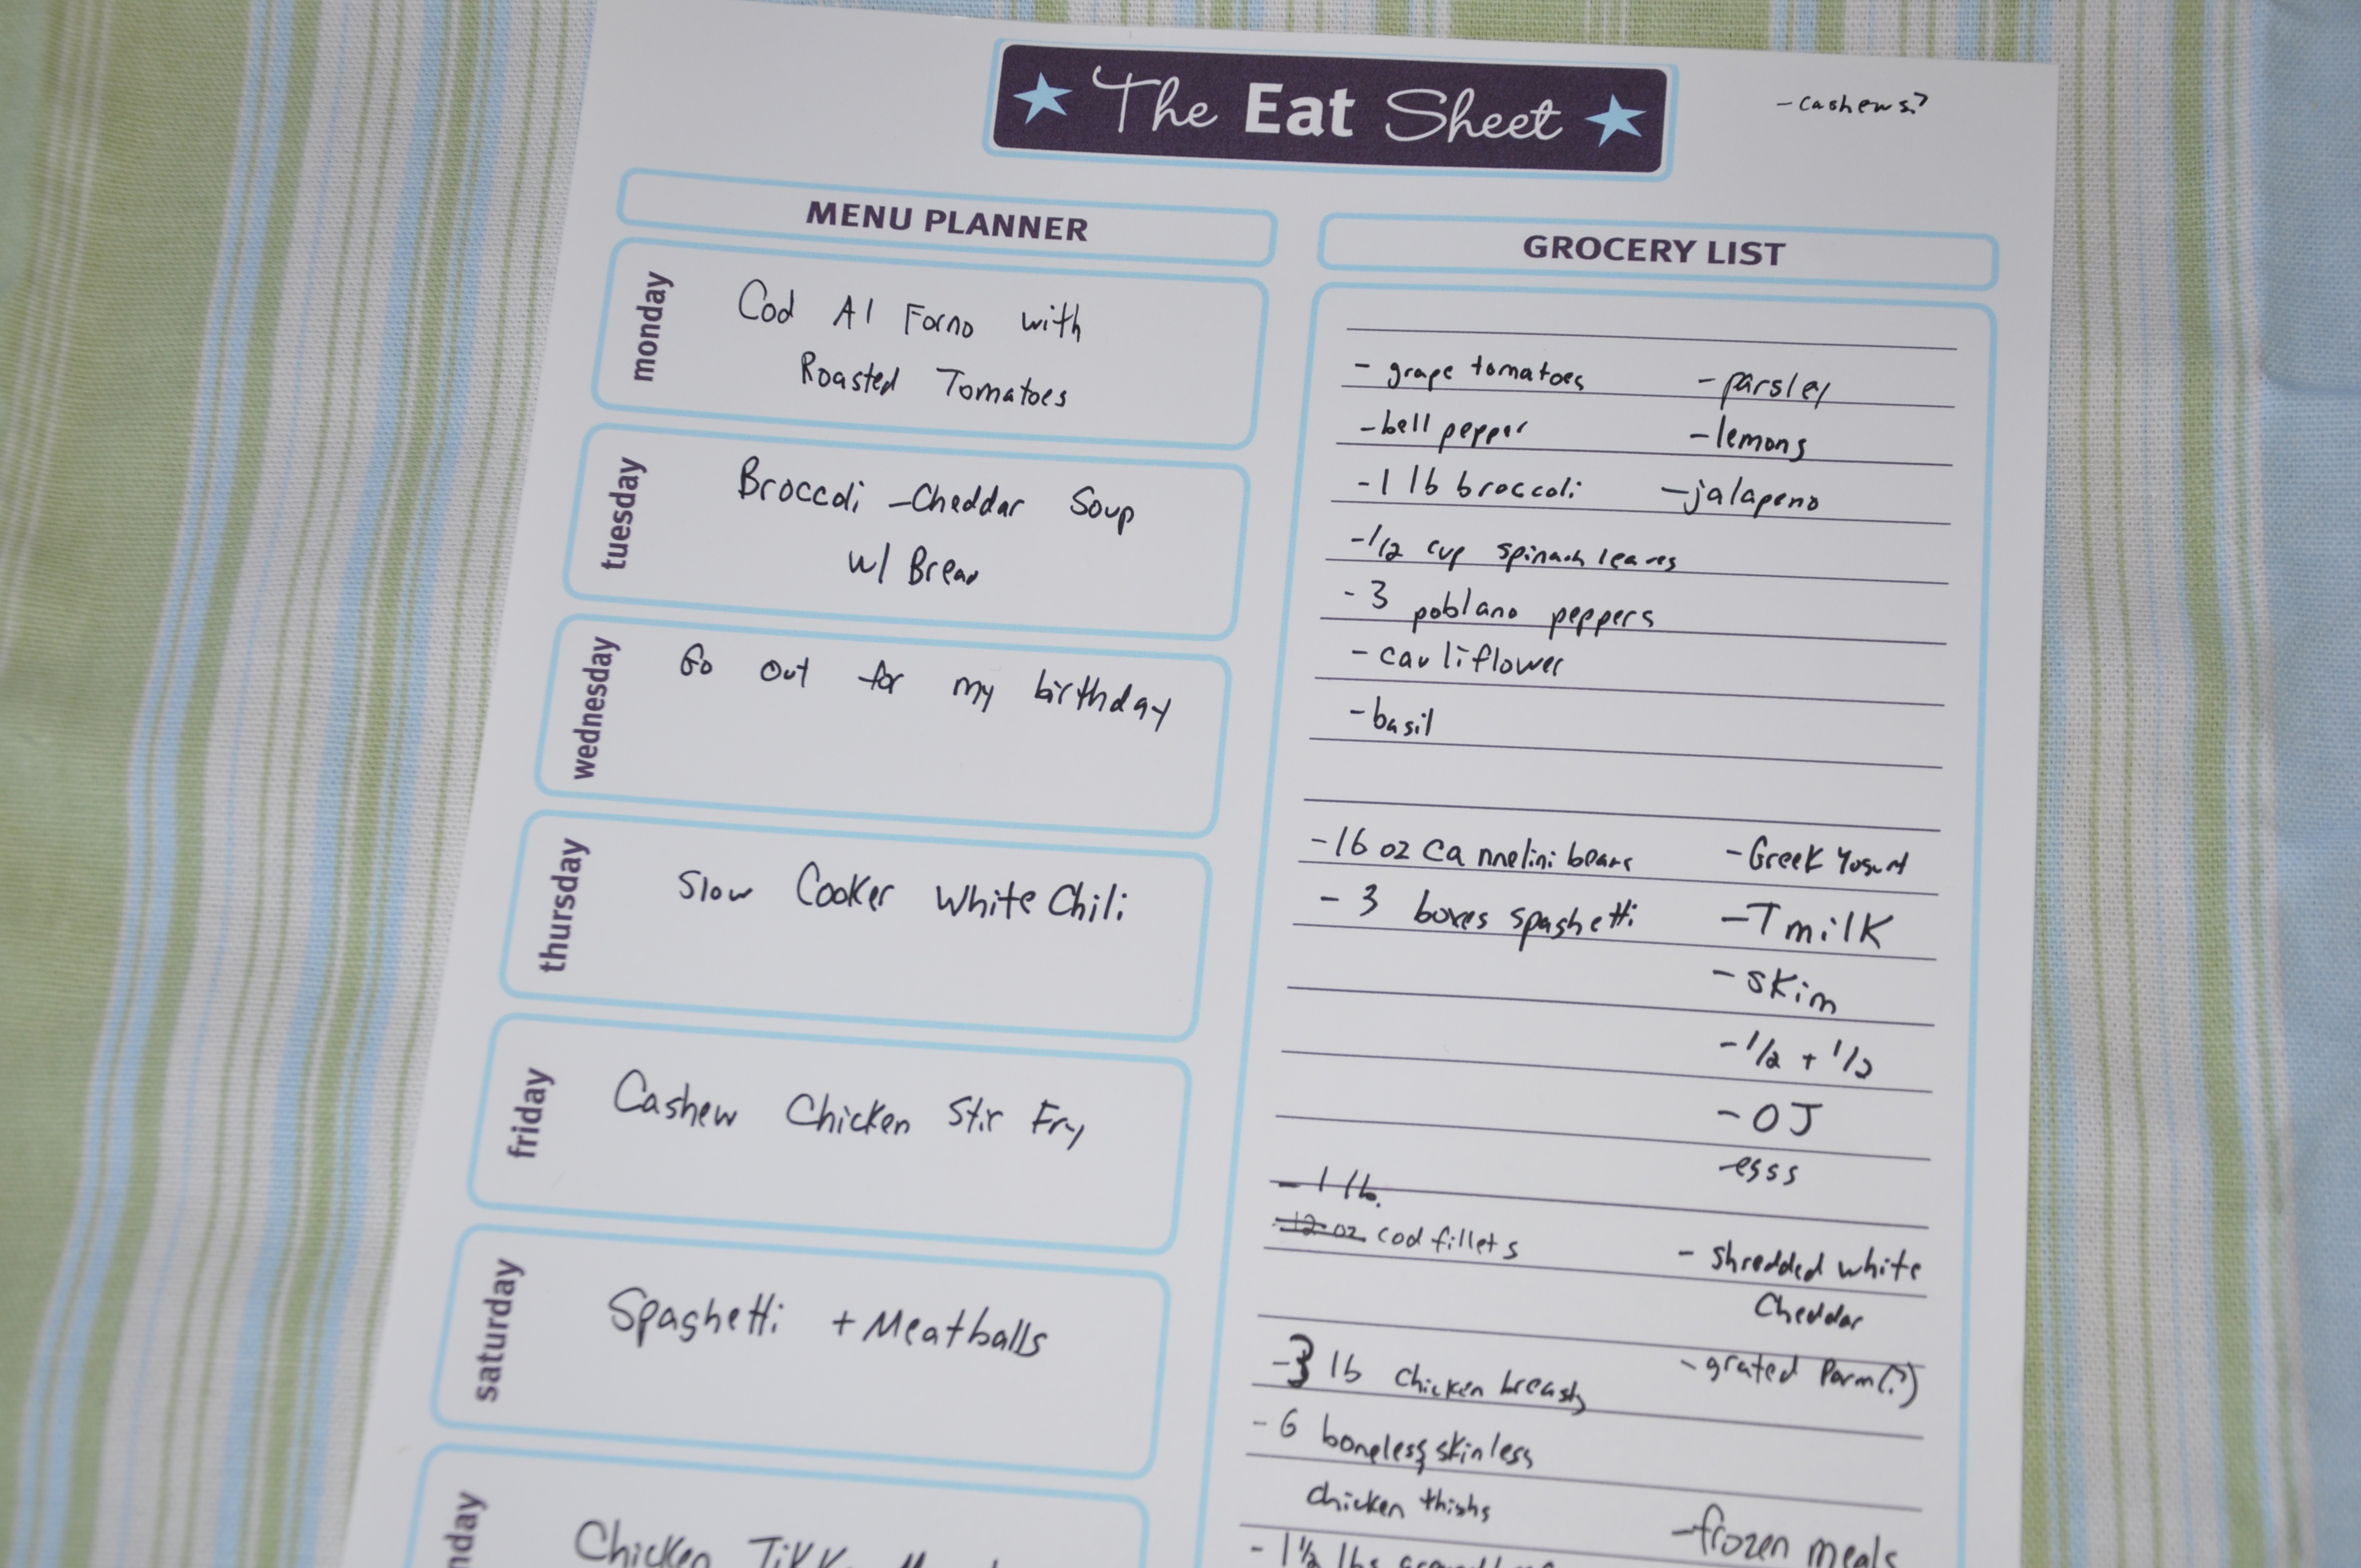 The Eat Sheet
- cashews?
MENU PLANNER
monday
Cod Al Forno with
Roasted Tomatoes
tuesday
Broccoli - Cheddar Soup
w/ Bread
wednesday
Go out for my birthday
thursday
Slow Cooker White Chili
friday
Cashew Chicken Stir Fry
saturday
Spaghetti + Meatballs
nday
Chicken
GROCERY LIST
- grape tomatoes - parsley
- bell pepper - lemons
- 1 lb broccoli - jalapeno
- 1/2 cup spinach leaves
- 3 poblano peppers
- cauliflower
- basil
- 16 oz cannelini beans - Greek Yogurt
- 3 boxes spaghetti - T milk
- skim
- 1/2 + 1/2
- OJ
- eggs
- 1 lb.
- 12 oz cod fillets - shredded white
Cheddar
- 3 lb chicken breasts - grated Parm(?)
- 6 boneless skinless
chicken thighs - frozen meals
- 1 1/2 lbs